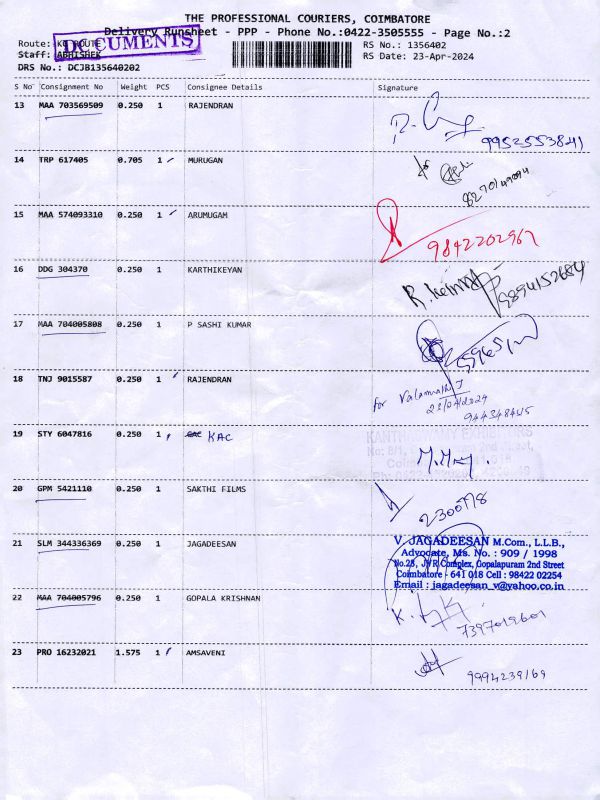 THE PROFESSIONAL COURIERS, COIMBATORE
Delivery Runsheet - PPP - Phone No.:0422-3505555 - Page No.:2
Route: KG ROUTE
DOCUMENTS
RS No.: 1356402
Staff: ABHISHEK
RS Date: 23-Apr-2024
DRS No.: DCJB135640202
S No Consignment No Weight PCS Consignee Details Signature
13 MAA 703569509 0.250 1 RAJENDRAN
9952553841
14 TRP 617405 0.705 1 MURUGAN
15 MAA 574093310 0.250 1 ARUMUGAM
9842202967
16 DDG 304370 0.250 1 KARTHIKEYAN
9894152684
17 MAA 704005808 0.250 1 P SASHI KUMAR
18 TNJ 9015587 0.250 1 RAJENDRAN
for Valarmathi J
23/04/2024
19 STY 6047816 0.250 1 KAC
KANTHASWAMY EXHIBITORS
20 GPM 5421110 0.250 1 SAKTHI FILMS
21 SLM 344336369 0.250 1 JAGADEESAN
V. JAGADEESAN M.Com., L.L.B.,
Advocate, Ms. No. : 909 / 1998
No.28, JVR Complex, Gopalapuram 2nd Street
Coimbatore - 641 018 Cell : 98422 02254
Email : jagadeesan_v@yahoo.co.in
22 MAA 704005796 0.250 1 GOPALA KRISHNAN
7397019601
23 PRO 16232021 1.575 1 AMSAVENI
9994239169